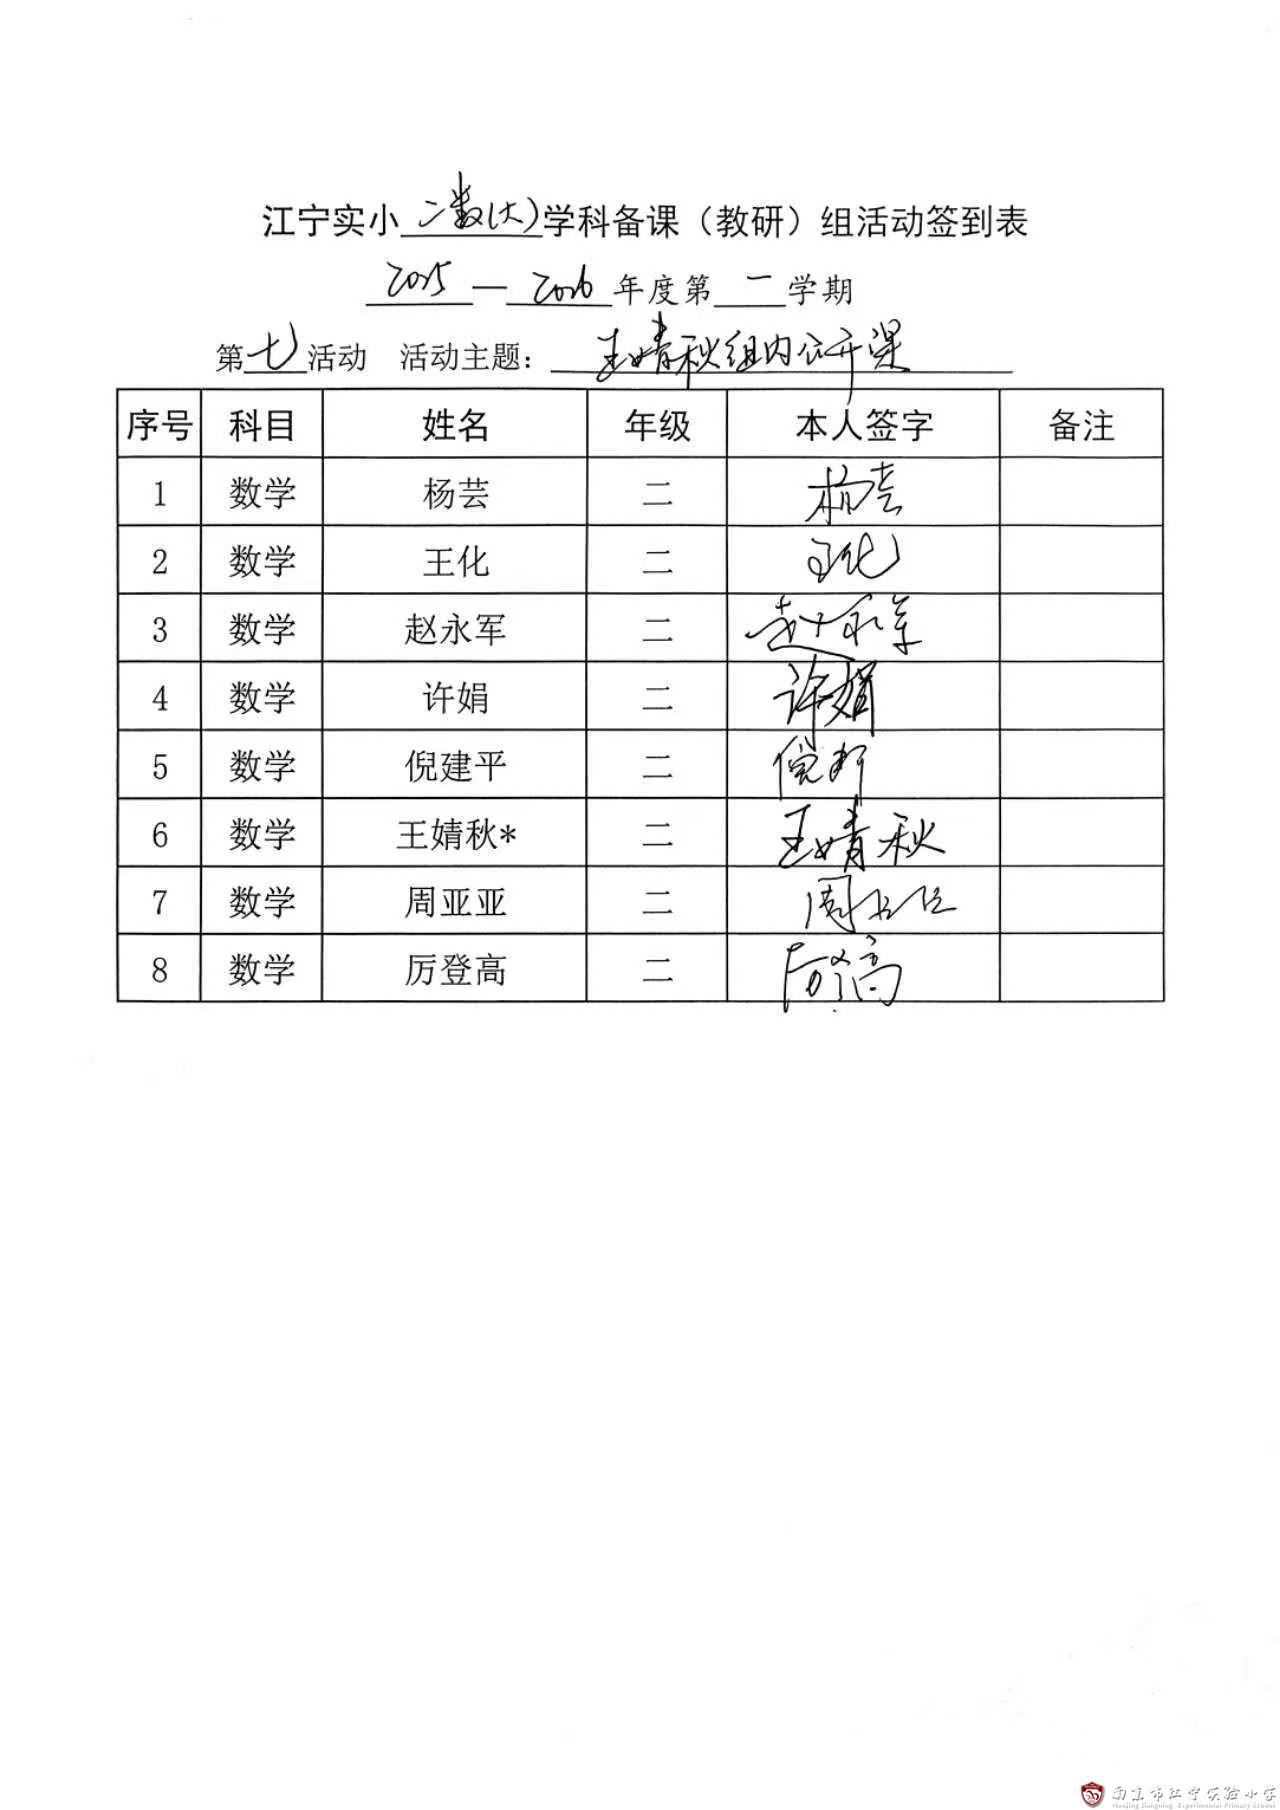 江宁实小二数(大)学科备课（教研）组活动签到表
2025—2026年度第一学期
第七活动 活动主题：王婧秋组内公开课
序号 科目 姓名 年级 本人签字 备注
1 数学 杨芸 二 杨芸
2 数学 王化 二 王化
3 数学 赵永军 二 赵永军
4 数学 许娟 二 许娟
5 数学 倪建平 二 倪建平
6 数学 王婧秋* 二 王婧秋
7 数学 周亚亚 二 周亚亚
8 数学 厉登高 二 厉登高
南京市江宁实验小学
Nanjing Jiangning Experimental Primary School